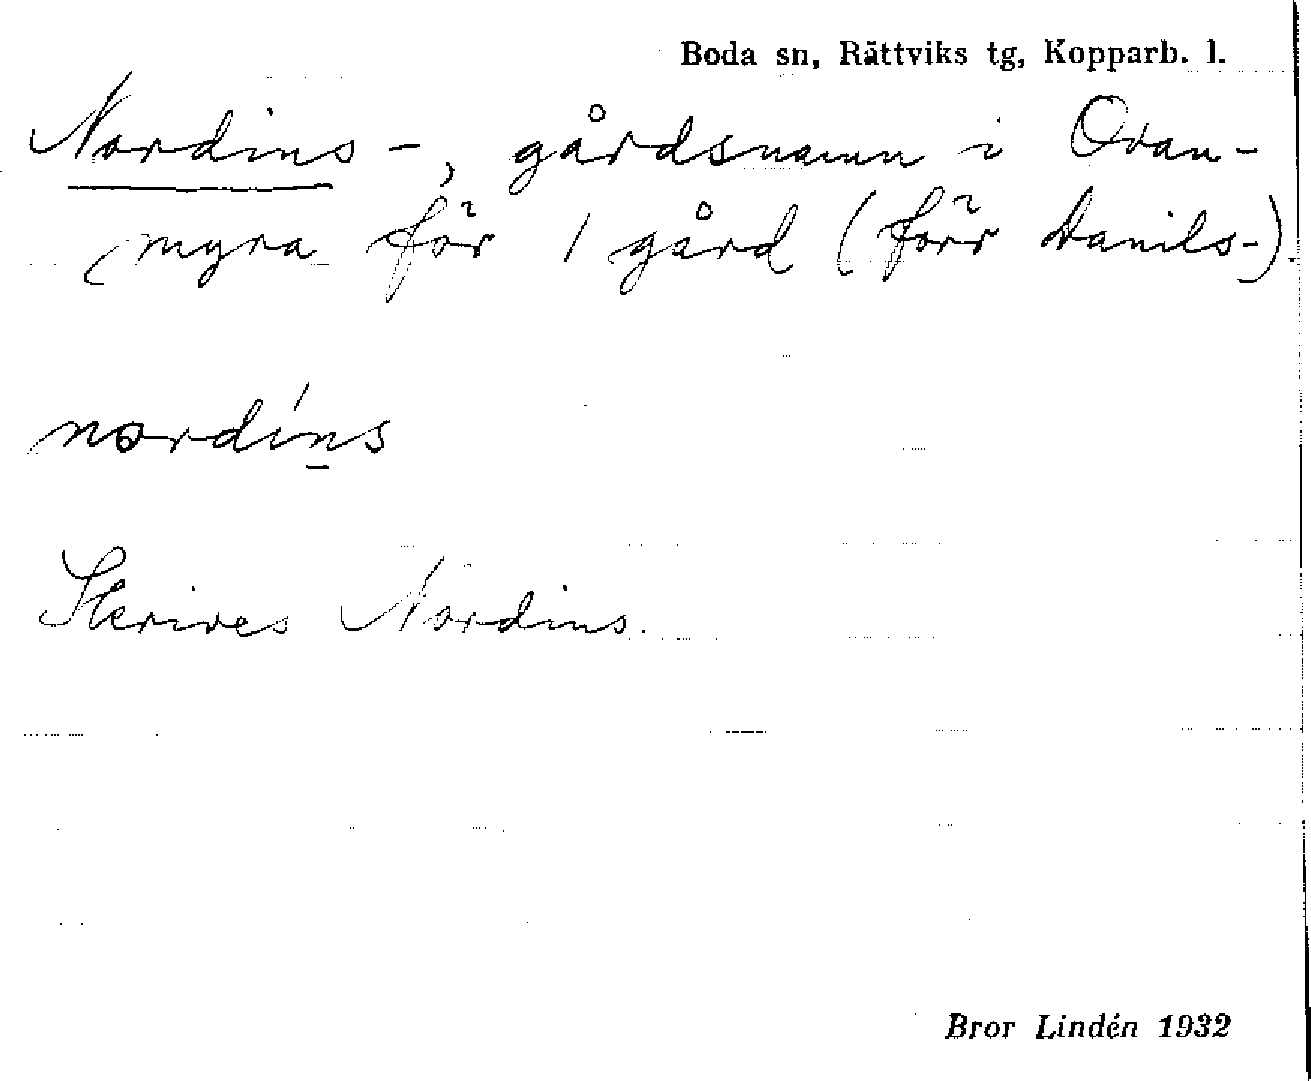 Boda sn, Rättviks tg, Kopparb. l.
Nordins-, gårdsnamn i Ovan-
myra för 1 gård (förr Danils-).
nordíns
Skrives Nordins.
Bror Lindén 1932